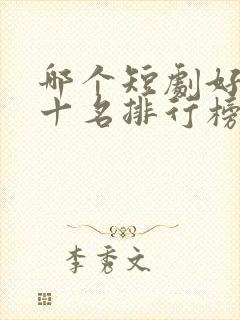 哪个短剧好
十名排行榜
李秀文